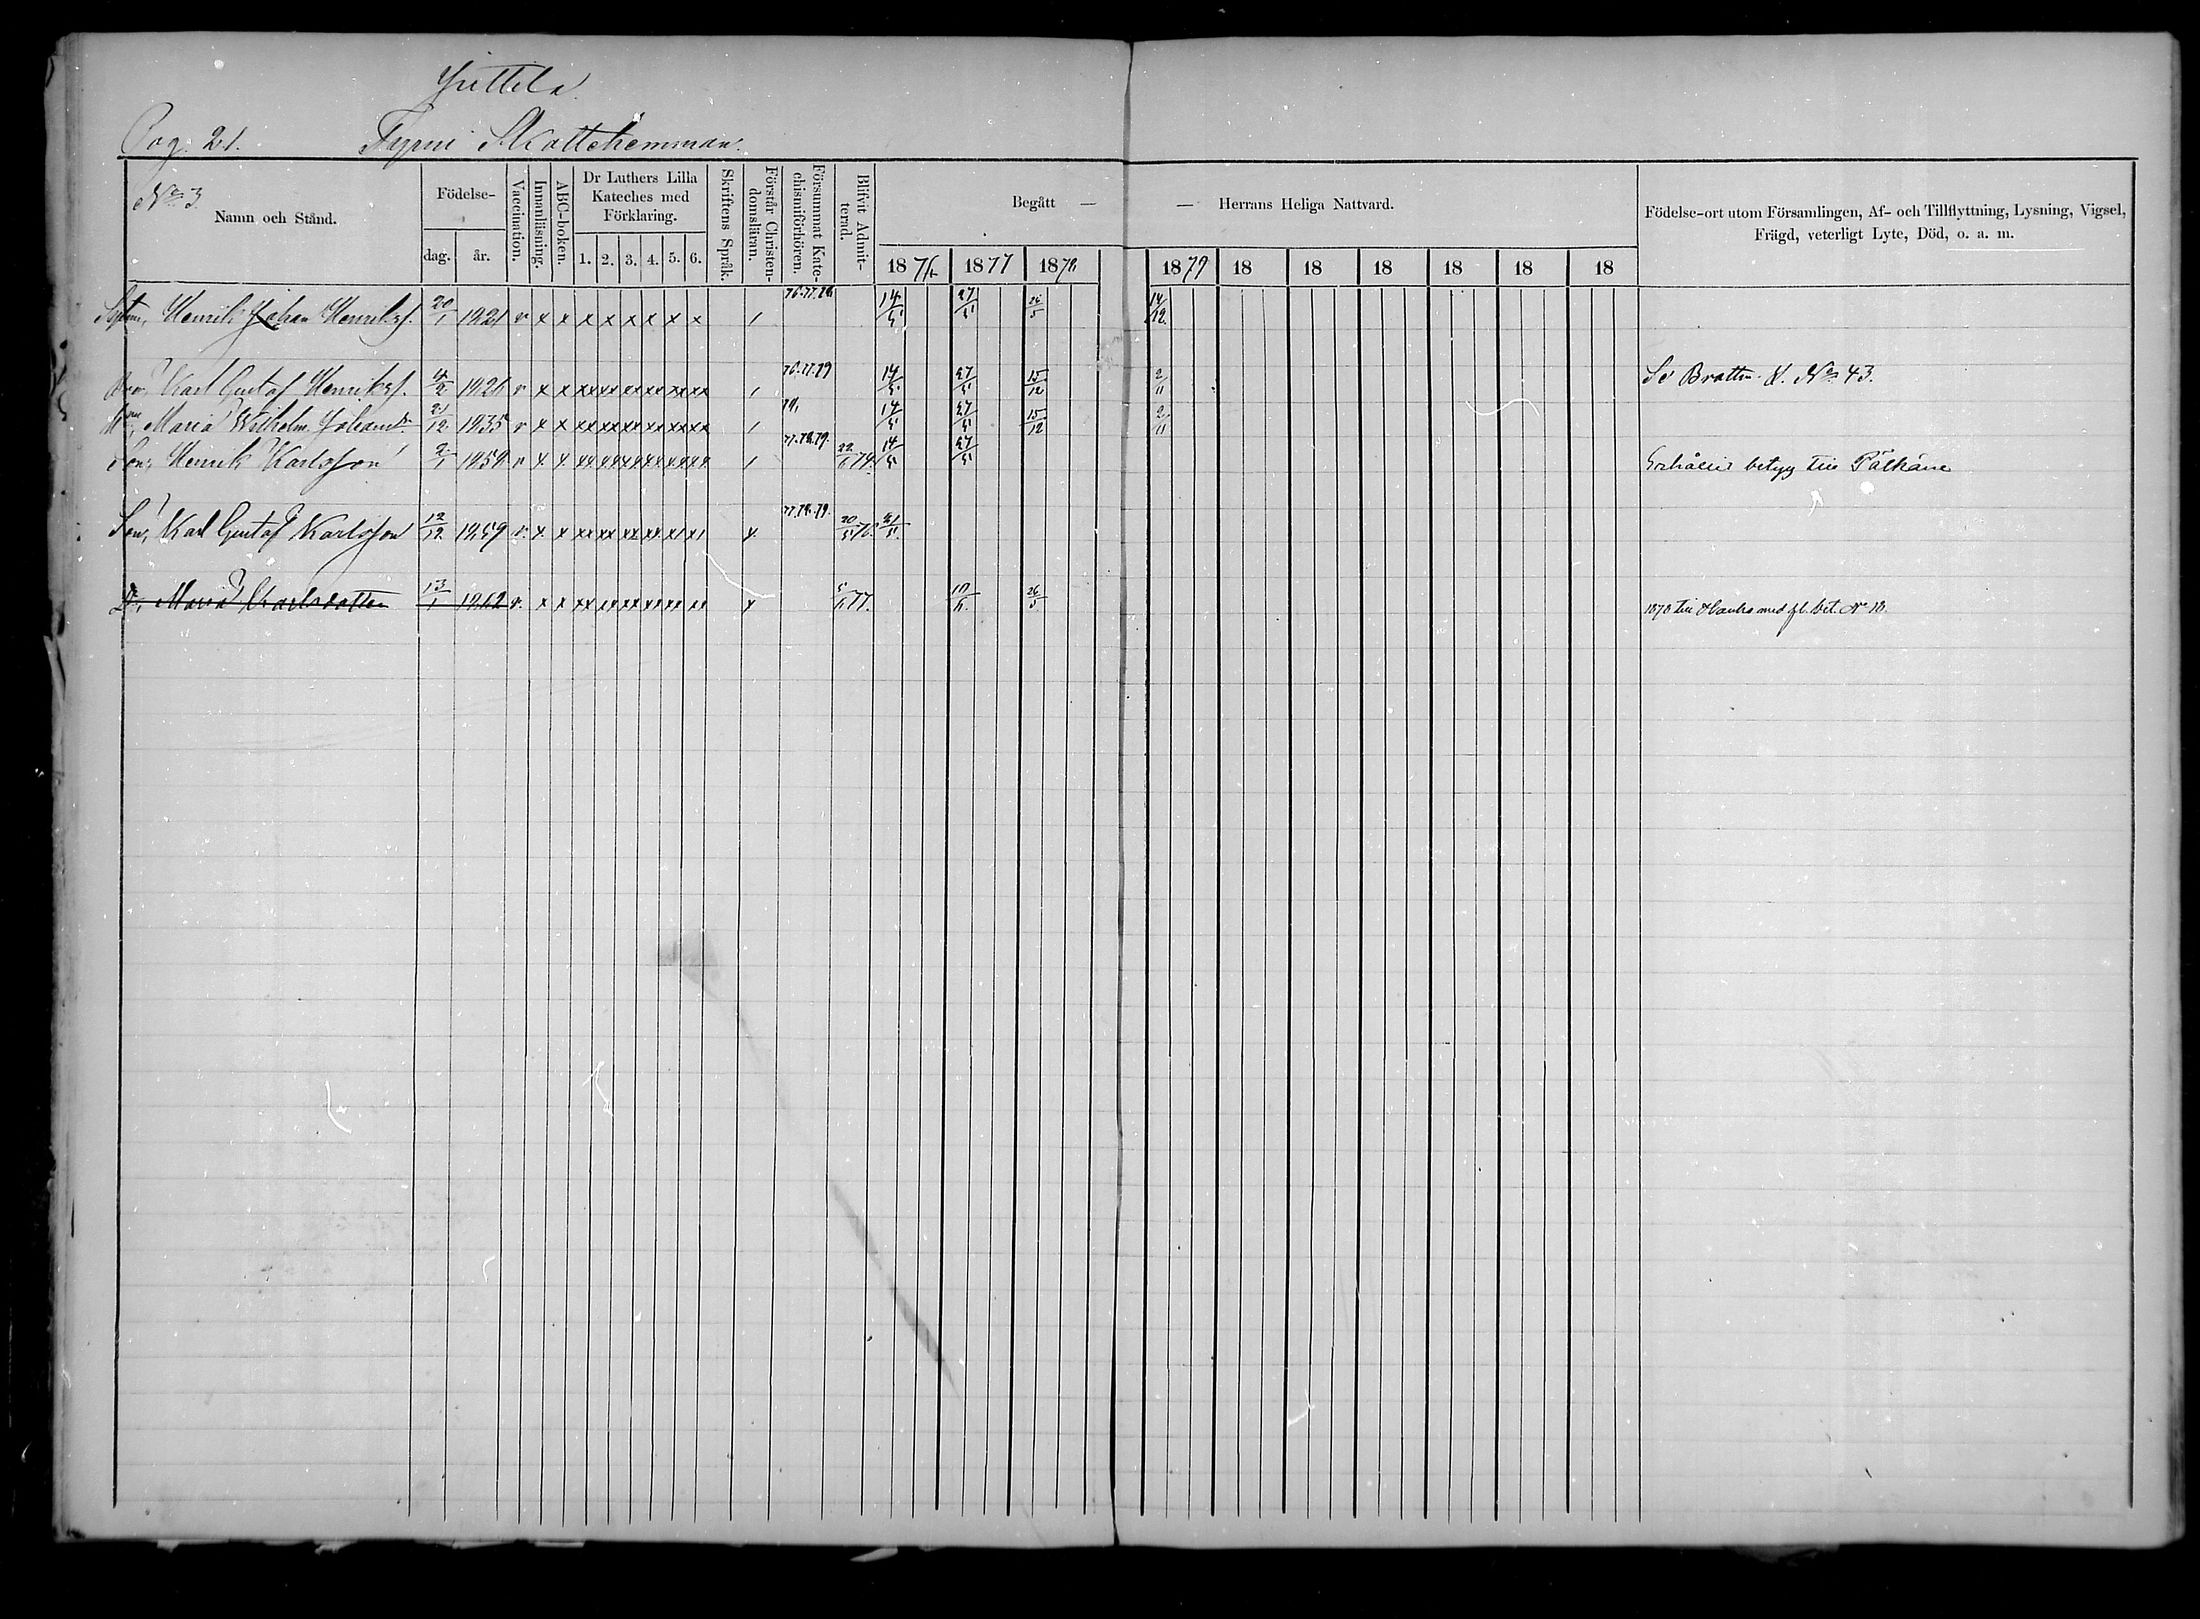 Yuttila
Pag. 21. Tyrni Skattehemman.
No 3
Namn och Stånd. Födelse- dag. år. Vaccination. Innanläsning. ABC-boken. Dr Luthers Lilla Kateches med Förklaring. 1. 2. 3. 4. 5. 6. Skriftens Språk. Förstår Christendomsläran. Försummat Katechismiförhören. Blifvit Admitterad. Begått — — Herrans Heliga Nattvard. Födelse-ort utom Församlingen, Af- och Tillflyttning, Lysning, Vigsel, Frägd, veterligt Lyte, Död, o. a. m.
1876 1877 1878 1879 18 18 18 18 18 18
Henrik Johan Henrikss. 20/1 1821 v x x x x x x x x / 76.77.78. 14/5 27/5 26/5 14/12
Karl Gustaf Henrikss. 4/2 1826 v x x xx xx xx xx xx xx / 76.77.79 14/5 27/5 15/12 2/11 Se Brattu No 43.
Maria Wilhelm. Johansdr. 21/12 1835 v x x xx xx xx xx xx xx / 14/5 27/5 15/12 2/11
Son, Henrik Karlsson 2/1 1858 v x x xx xx xx xx xx xx / 77.78.79. 22/6 74. 14/5 27/5 Erhållit betyg till Pälkäne
Son, Karl Gustaf Karlsson 12/12 1859 v. x x xx xx xx xx xx x/ x 77.78.79. 20/5 76. 21/5
D., Maria Karlsdotter 13/1 1862 v. x x xx xx xx xx xx xx x 77. 10/6 26/5 1878 till med fl. bet. No 18.